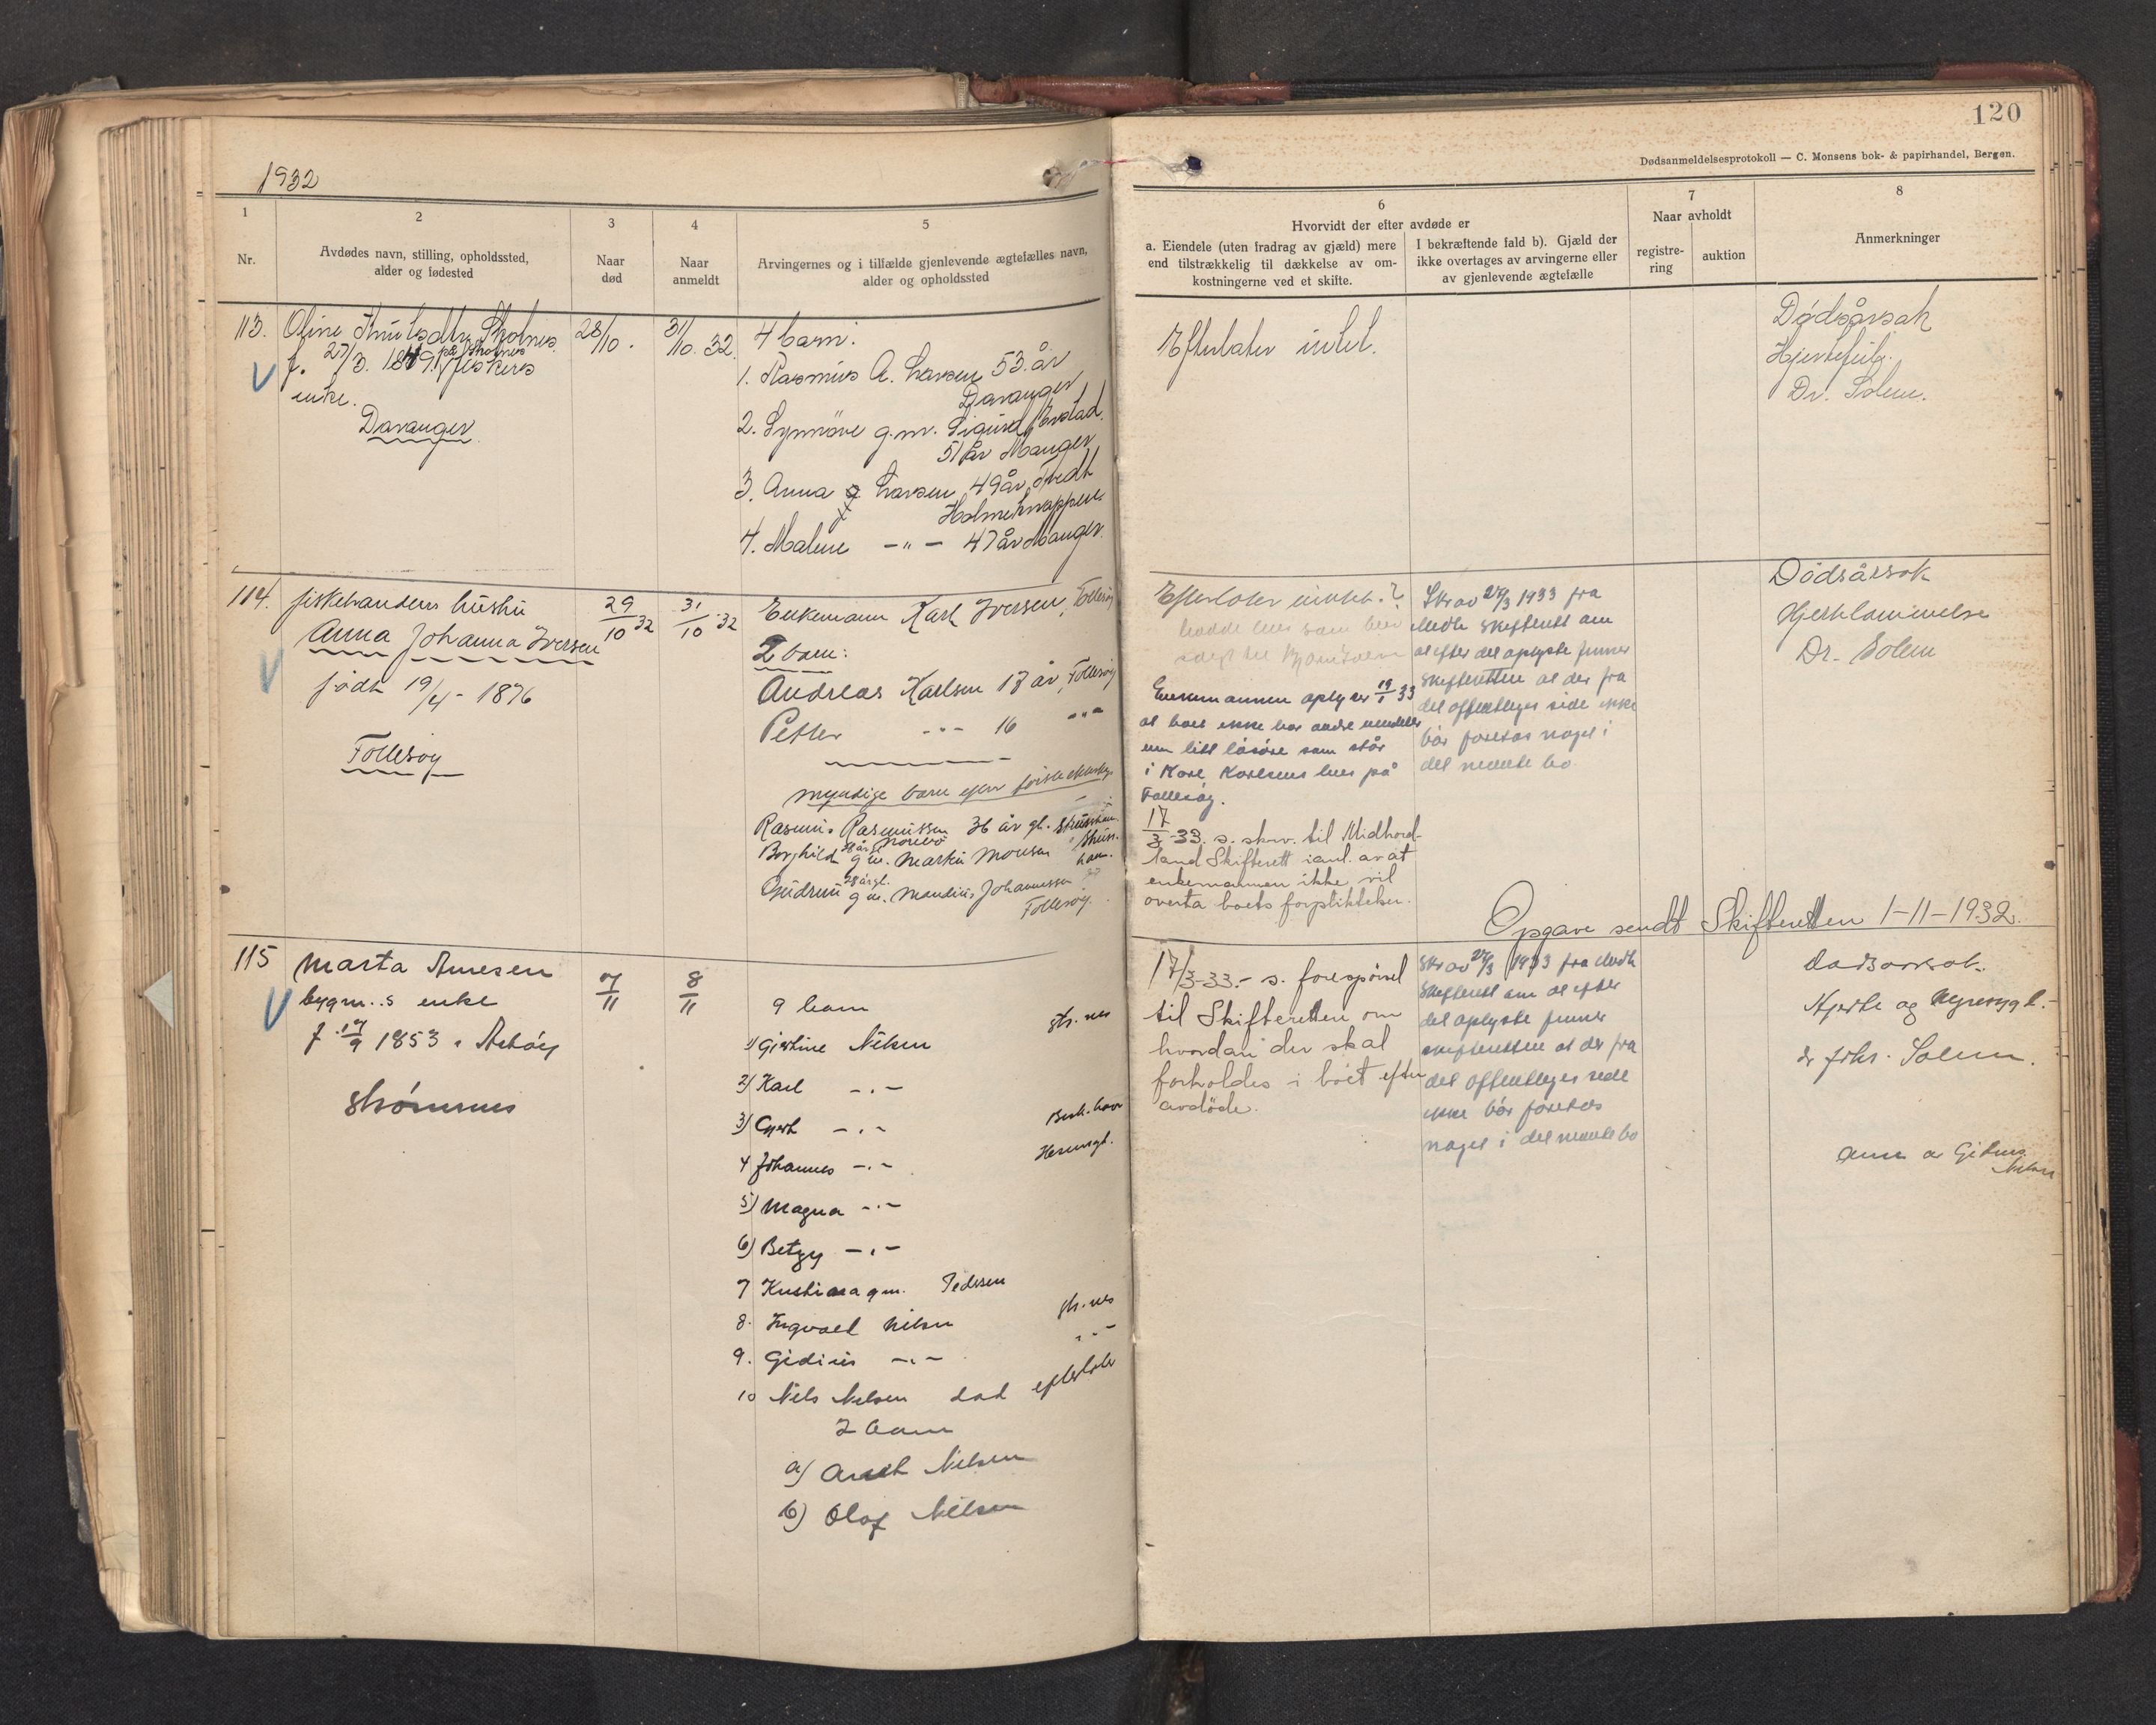 120
Dødsanmeldelsesprotokoll — C. Monsens bok- & papirhandel, Bergen.
1932
1
Nr.
2
Avdødes navn, stilling, opholdssted,
alder og fødested
3
Naar
død
4
Naar
anmeldt
5
Arvingernes og i tilfælde gjenlevende ægtefælles navn,
alder og opholdssted
6
Hvorvidt der efter avdøde er
a. Eiendele (uten fradrag av gjæld) mere
end tilstrækkelig til dækkelse av om-
kostningerne ved et skifte.
I bekræftende fald b). Gjæld der
ikke overtages av arvingerne eller
av gjenlevende ægtefælle
7
Naar avholdt
registre-
ring
auktion
8
Anmerkninger
113.
Oline Knutsdtr. Skolnes
f. 27/3. 1849. på Skolnes
fiskers
enke.
Davanger
28/10.
31/10. 32.
4 barn:
1. Rasmus A. Larsen 53 år
Davanger
2. Synnöve g.m. Sigurd
51 år Manger
3. Anna Larsen 49 år Fredt
Holmeknappen.
4. Malene -"- 47 år Manger.
Efterlater intet.
Dödsårsak
Hjertefeil.
Dr. Solem.
114.
fiskehandlers hustru
Anna Johanna Iversen
född 19/4 - 1876
Follesøy
29/10 32
31/10 32
Enkemann Karl Iversen, Follesøy
2 barn:
Andreas Karlsen 17 år, Follesøy
Petter -"- 16 -"-
myndige barn efter første ekteskap
Rasmus Rasmussen 36 år gl.
Borghild g.m. Martin Monsen
Gudrun 28 år gl. g.m. Johannessen
Follesøy.
Efterlater intet.?
hadde hus som blev
solgt til
Enkemannen oplyser 19/1 33
at boet ikke har andre eiendeler
enn litt løsøre som står
i Karl Karlsens hus på
Follesøy.
17/3-33. s. skrv. til Midhord-
land Skifterett i anl. av at
enkemannen ikke vil
overta boets forpliktelser.
Skr av 27/3 1933 fra
Midh. Skifterett om
at efter det oplyste finner
Skifteretten at der fra
det offentliges side ikke
bör foretas noget i
det nevnte bo
Dödsårsak
Hjertelammelse
Dr. Solem
Opgave sendt Skifteretten 1-11-1932.
115
Marta Arnesen
bygm..s enke
f. 17/9 1853 i Askøy
Strömsnes
7/11
8/11
9 barn
1) Gjertine Nilsen
str. nes
2) Karl -.-
3) Gjert -.-
4 Johannes -.-
5) Magna -.-
6) Betzy -.-
7 Kristina gm. Pedersen
8. Ingvald Nilsen
str. nes
9. Gidius -.-
-.-
10 Nils Nilsen död efterlater
2 barn
a) Nilsen
b) Olaf Nilsen
17/3-33.- s. forespørsel
til Skifteretten om
hvordan der skal
forholdes i boet efter
avdøde.
Skr av 27/3 1933 fra Midh
Skifterett om at efter
det oplyste finner
skifteretten at der fra
det offentliges side
ikke bör foretas
noget i det nevnte bo
dødsårsak
Hjerte og Nyresygd.
dr Johs. Solem.
anm av Gidius
Nilsen